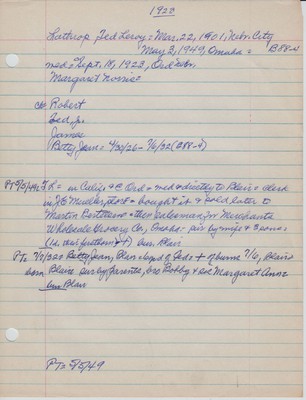 1923
Lathrop, Ted Leroy = Mar. 22, 1901, Nebr. City
May 3, 1949, Omaha = B88-4
med = Sept. 18, 1923, Ord Nebr.
Margaret Norris =
ch Robert
Ted, Jr.
James
(Betty Jean = 4/30/26 - 7/6/32 (B88-4)
PT 5/5/49: TL = in Calif & @ Ord = med & directly to Blair = clerk
in JE Mueller store = bought it & sold later to
Martin Bertelsen = then salesman for Merchants
Wholesale Grocery Co, Omaha = sur by wife & 3 sons =
bur Blair
PTo 7/7/32: Betty Jean, dau of Teds + of burns 7/6, Blair =
born Blair = sur by parents, bro Bobby & sis Margaret Anne
bur Blair
PTo 5/5/49